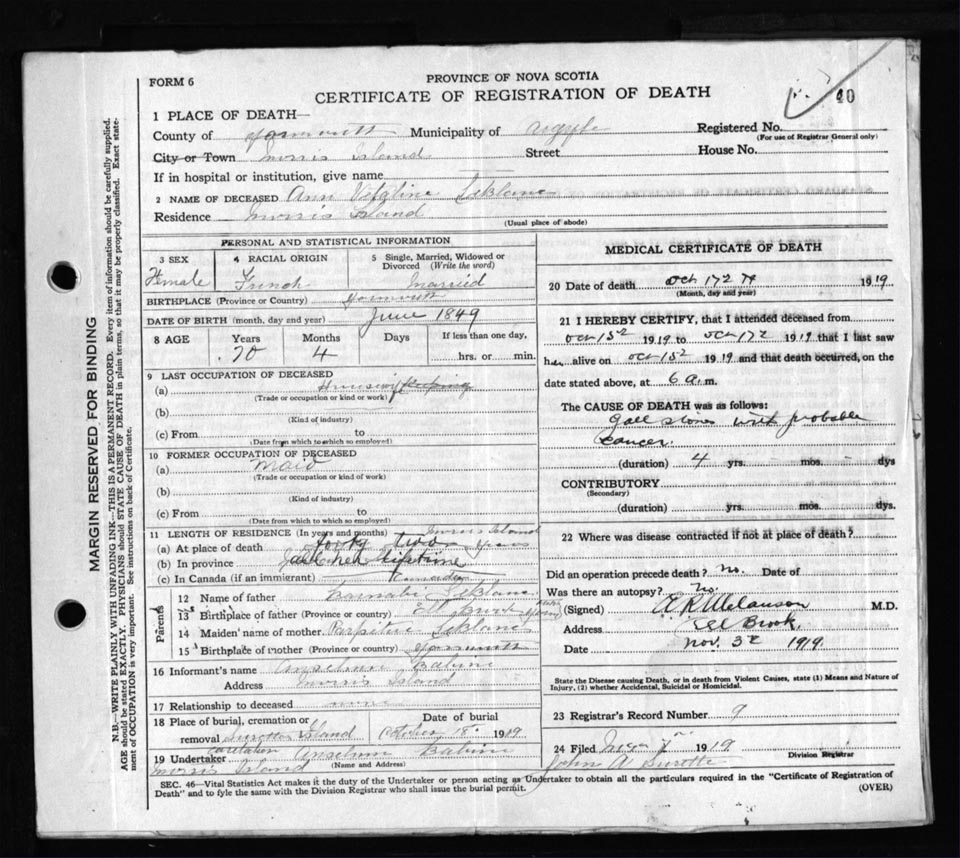 FORM 6
PROVINCE OF NOVA SCOTIA
CERTIFICATE OF REGISTRATION OF DEATH
40
1 PLACE OF DEATH—
County of Yarmouth Municipality of Argyle Registered No.
(For use of Registrar General only)
City or Town Morris Island Street House No.
If in hospital or institution, give name
2 NAME OF DECEASED Ann LeBlanc
Residence Morris Island
(Usual place of abode)
PERSONAL AND STATISTICAL INFORMATION
3 SEX 4 RACIAL ORIGIN 5 Single, Married, Widowed or Divorced (Write the word)
Female French Married
BIRTHPLACE (Province or Country) Yarmouth
DATE OF BIRTH (month, day and year) June 1849
8 AGE Years Months Days If less than one day,
70 4 hrs. or min.
9 LAST OCCUPATION OF DECEASED
(a) Housewife keeping
(Trade or occupation or kind or work)
(b)
(Kind of industry)
(c) From to
(Date from which to which so employed)
10 FORMER OCCUPATION OF DECEASED
(a) Maid
(Trade or occupation or kind of work)
(b)
(Kind of industry)
(c) From to
(Date from which to which so employed)
11 LENGTH OF RESIDENCE (In years and months) Morris Island
(a) At place of death forty two years
(b) In province all her lifetime
(c) In Canada (if an immigrant)
Parents
12 Name of father LeBlanc
13 Birthplace of father (Province or country) Eel Brook
14 Maiden name of mother LeBlanc
15 Birthplace of mother (Province or country) Yarmouth
16 Informant's name Anselme Babine
Address Morris Island
17 Relationship to deceased none
18 Place of burial, cremation or Date of burial
removal Surettes Island October 18 1919
19 Undertaker Anselme Babine
Morris Island (Name and Address)
MEDICAL CERTIFICATE OF DEATH
20 Date of death Oct 17 1919
(Month, day and year)
21 I HEREBY CERTIFY, that I attended deceased from
Oct 15 1919 to Oct 17 1919 that I last saw
her alive on Oct 15 1919 and that death occurred, on the
date stated above, at 6 a.m.
The CAUSE OF DEATH was as follows:
Gall stones with probable
cancer.
(duration) 4 yrs. mos. dys
CONTRIBUTORY
(Secondary)
(duration) yrs. mos. dys.
22 Where was disease contracted if not at place of death?
Did an operation precede death? no. Date of
Was there an autopsy? no.
(Signed) A R Melanson M.D.
Address Eel Brook.
Date Nov. 3 1919.
State the Disease causing Death, or in death from Violent Causes, state (1) Means and Nature of
Injury, (2) whether Accidental, Suicidal or Homicidal.
23 Registrar's Record Number 9
24 Filed 1919
John A Surette Division Registrar
SEC. 46—Vital Statistics Act makes it the duty of the Undertaker or person acting as Undertaker to obtain all the particulars required in the "Certificate of Registration of
Death" and to fyle the same with the Division Registrar who shall issue the burial permit.
(OVER)
MARGIN RESERVED FOR BINDING
N.B.—WRITE PLAINLY WITH UNFADING INK—THIS IS A PERMANENT RECORD. Every item of information should be carefully supplied.
AGE should be stated EXACTLY. PHYSICIANS should STATE CAUSE OF DEATH in plain terms, so that it may be properly classified. Exact state-
ment of OCCUPATION is very important. See instructions on back of Certificate.